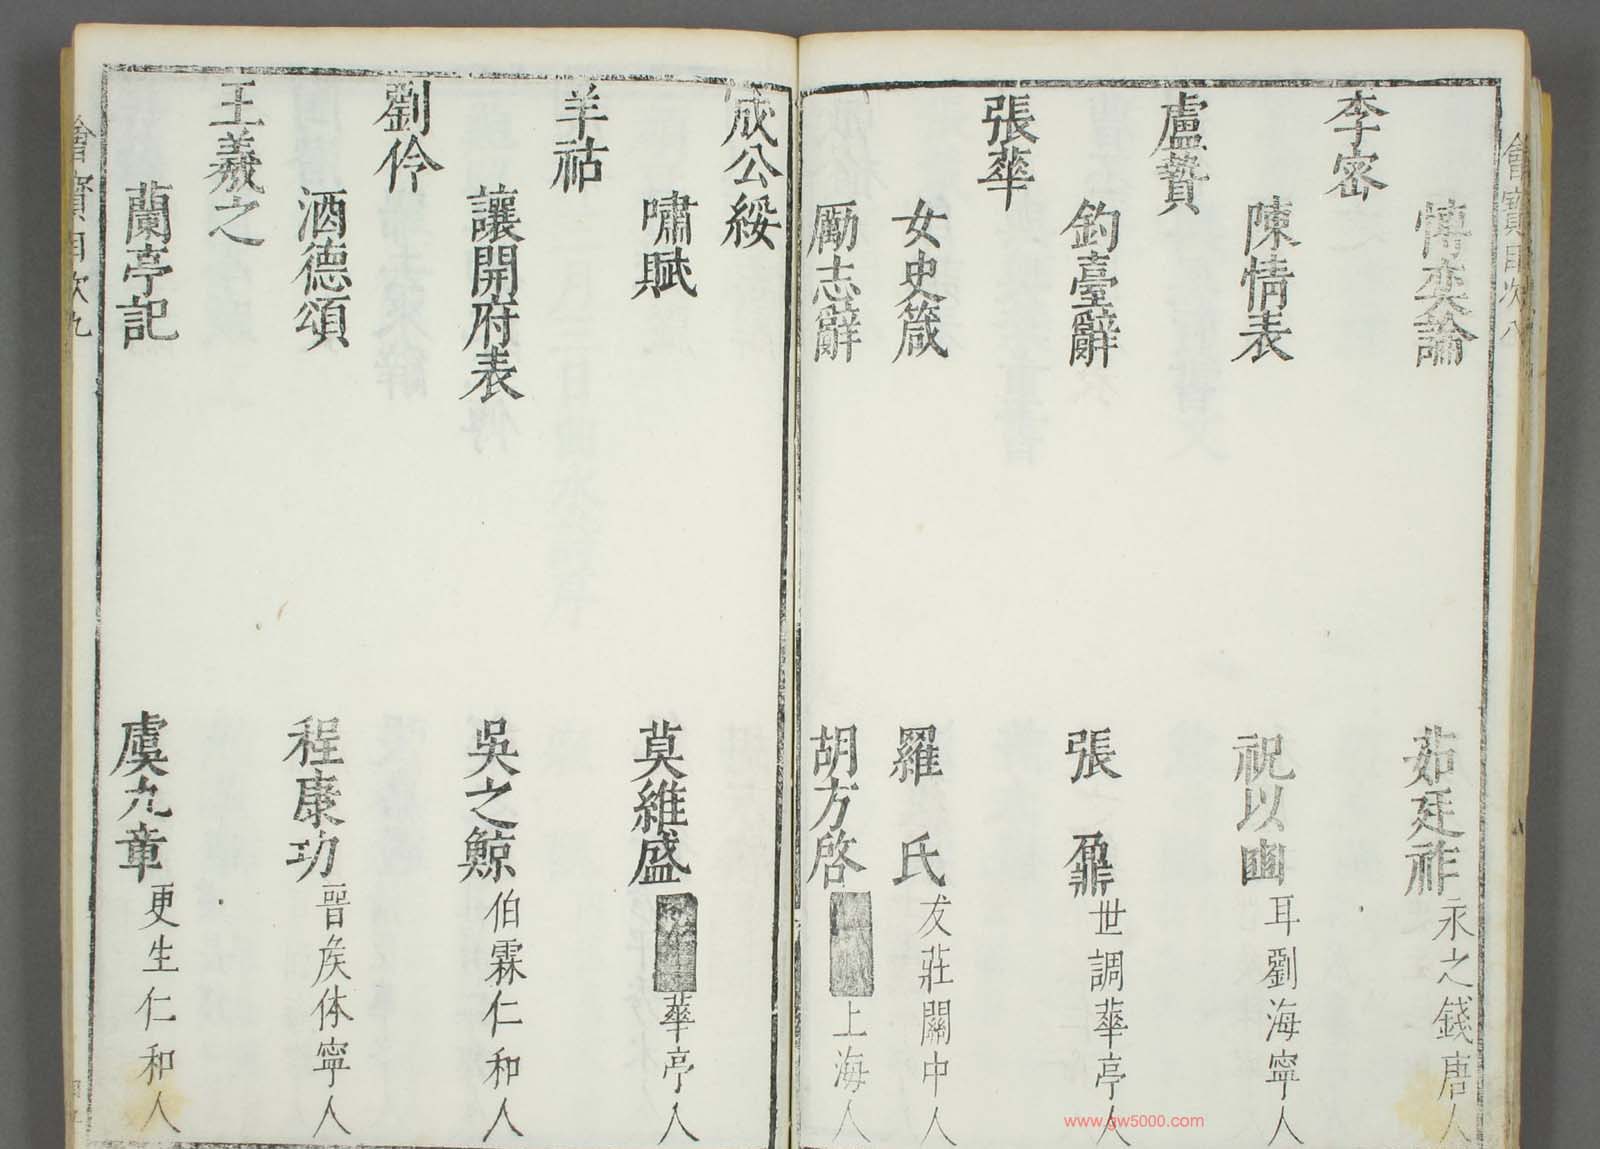 會寶目次八
慱奕論 茹廷祚 永之錢唐人
李密
陳情表 祝以豳 耳劉海寧人
盧贄
釣臺辭 張鼐 世調華亭人
張華
女史箴 羅氏 友莊關中人
勵志辭 胡方啓 上海人
成公綏
嘯賦 莫維盛 華亭人
羊祜
讓開府表 吳之鯨 伯霖仁和人
劉伶
酒德頌 程康功 晉矦体寧人
王羲之
蘭亭記 虞九章 更生仁和人
會寶目次九
www.gw5000.com